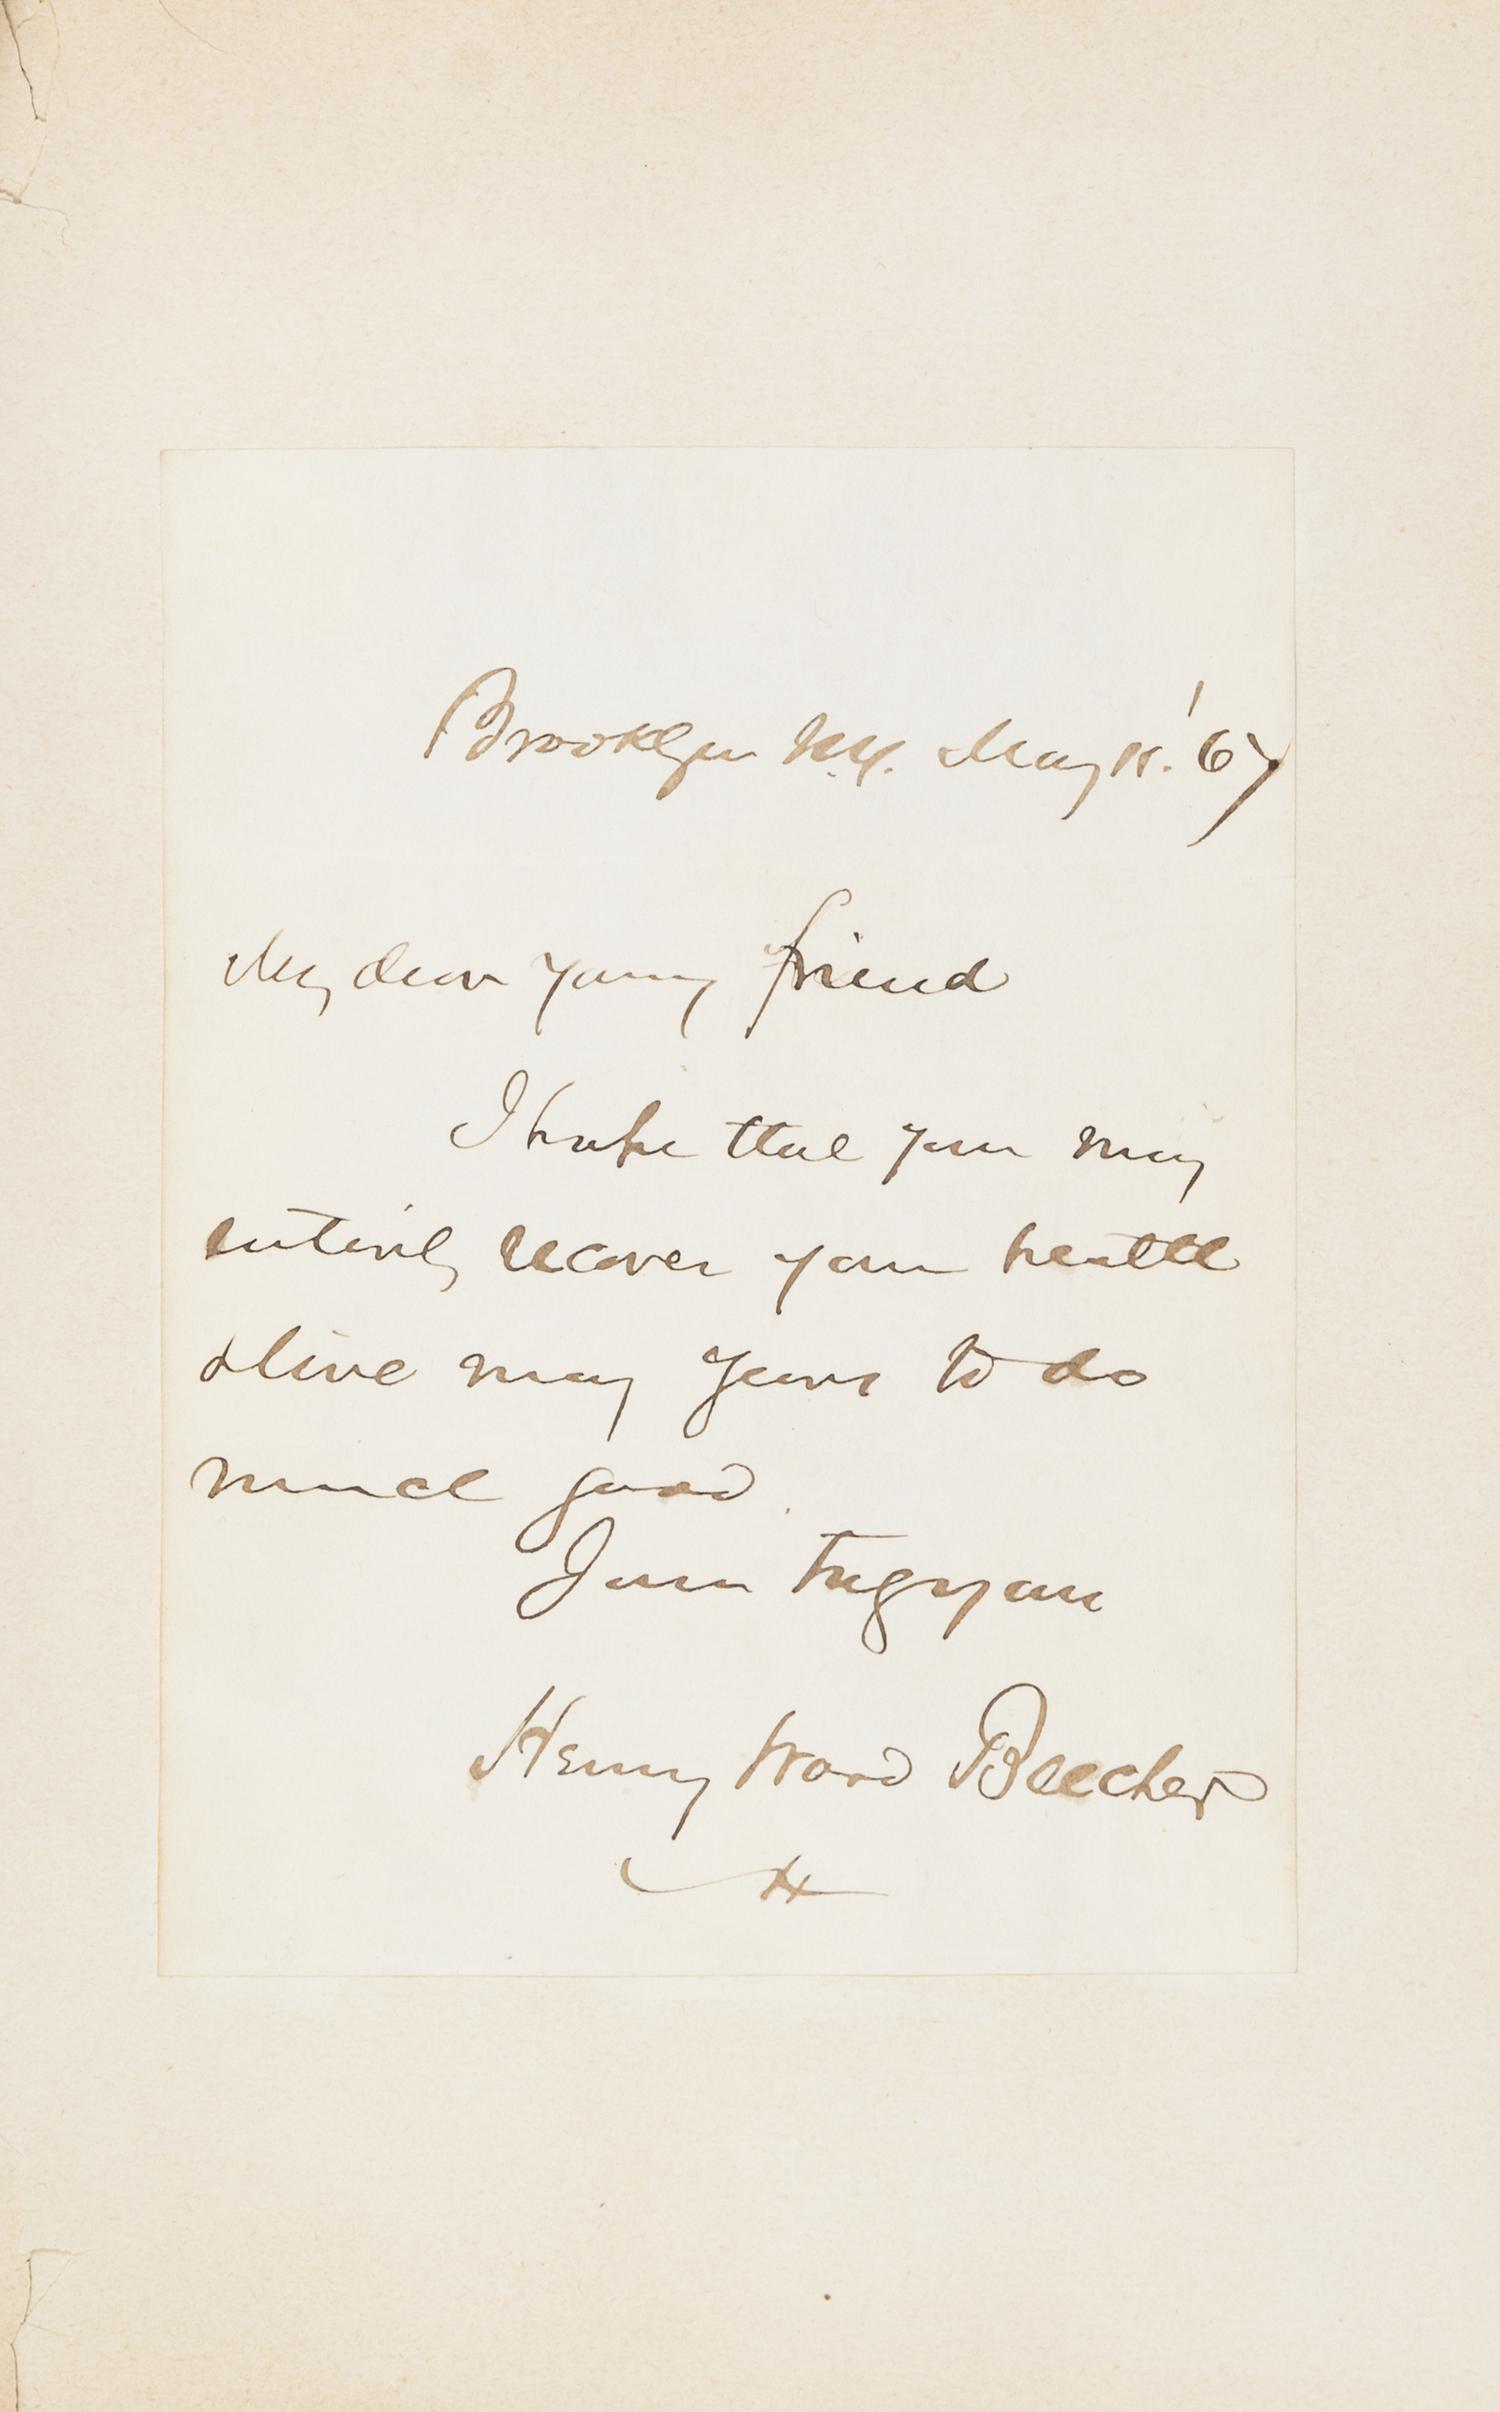 Brooklyn N.Y. May '67
My dear young friend
I hope that you may
entirely recover your health
& live many years to do
much good.
I am truly yours
Henry Ward Beecher